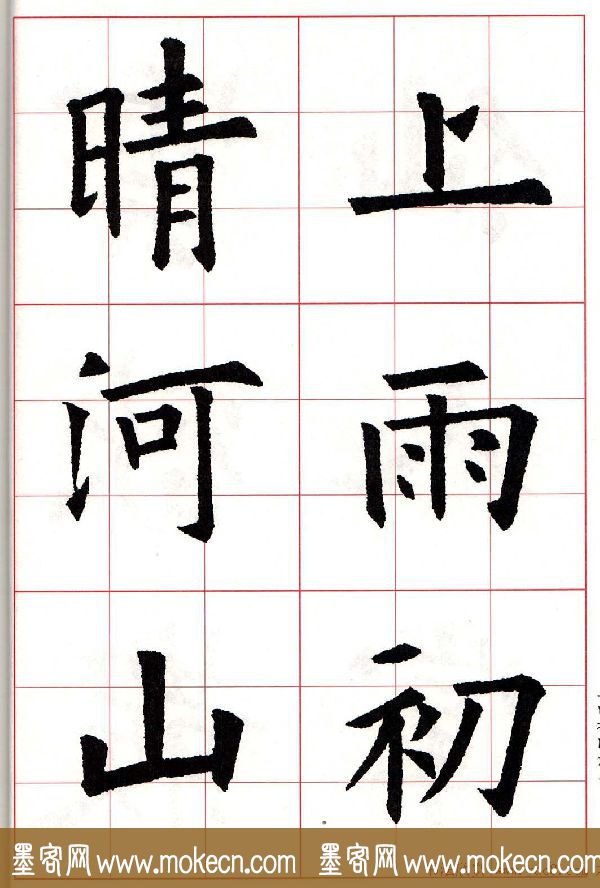 上雨初
晴河山
墨客网 www.mokecn.com 墨客网 www.mokecn.com